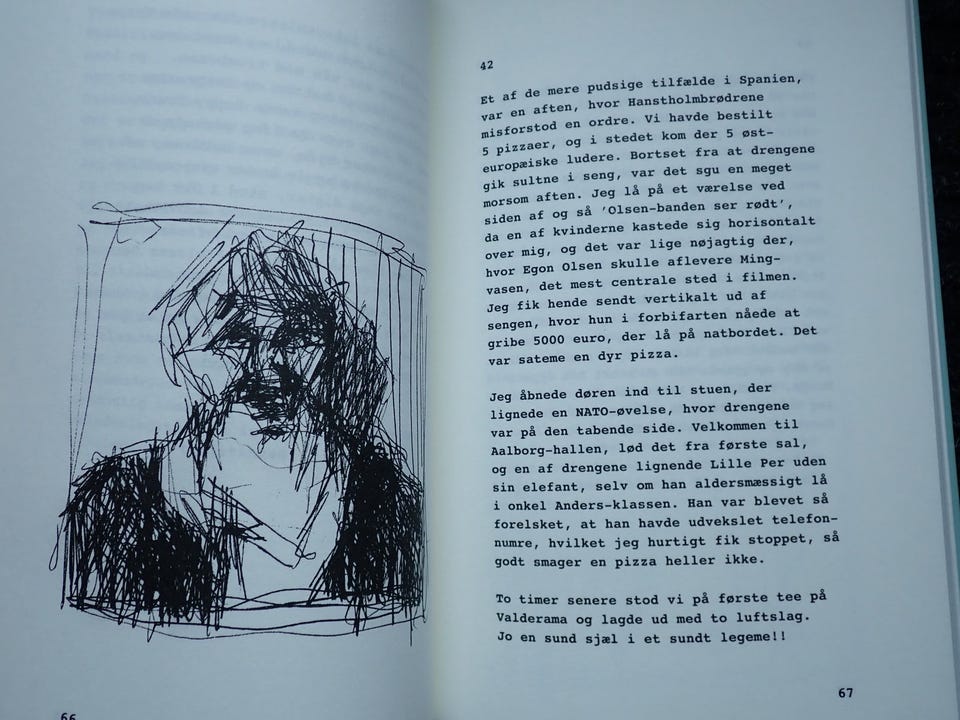 42
Et af de mere pudsige tilfælde i Spanien,
var en aften, hvor Hanstholmbrødrene
misforstod en ordre. Vi havde bestilt
5 pizzaer, og i stedet kom der 5 øst-
europæiske ludere. Bortset fra at drengene
gik sultne i seng, var det sgu en meget
morsom aften. Jeg lå på et værelse ved
siden af og så 'Olsen-banden ser rødt',
da en af kvinderne kastede sig horisontalt
over mig, og det var lige nøjagtig der,
hvor Egon Olsen skulle aflevere Ming-
vasen, det mest centrale sted i filmen.
Jeg fik hende sendt vertikalt ud af
sengen, hvor hun i forbifarten nåede at
gribe 5000 euro, der lå på natbordet. Det
var sateme en dyr pizza.
Jeg åbnede døren ind til stuen, der
lignede en NATO-øvelse, hvor drengene
var på den tabende side. Velkommen til
Aalborg-hallen, lød det fra første sal,
og en af drengene lignende Lille Per uden
sin elefant, selv om han aldersmæssigt lå
i onkel Anders-klassen. Han var blevet så
forelsket, at han havde udvekslet telefon-
numre, hvilket jeg hurtigt fik stoppet, så
godt smager en pizza heller ikke.
To timer senere stod vi på første tee på
Valderama og lagde ud med to luftslag.
Jo en sund sjæl i et sundt legeme!!
66
67